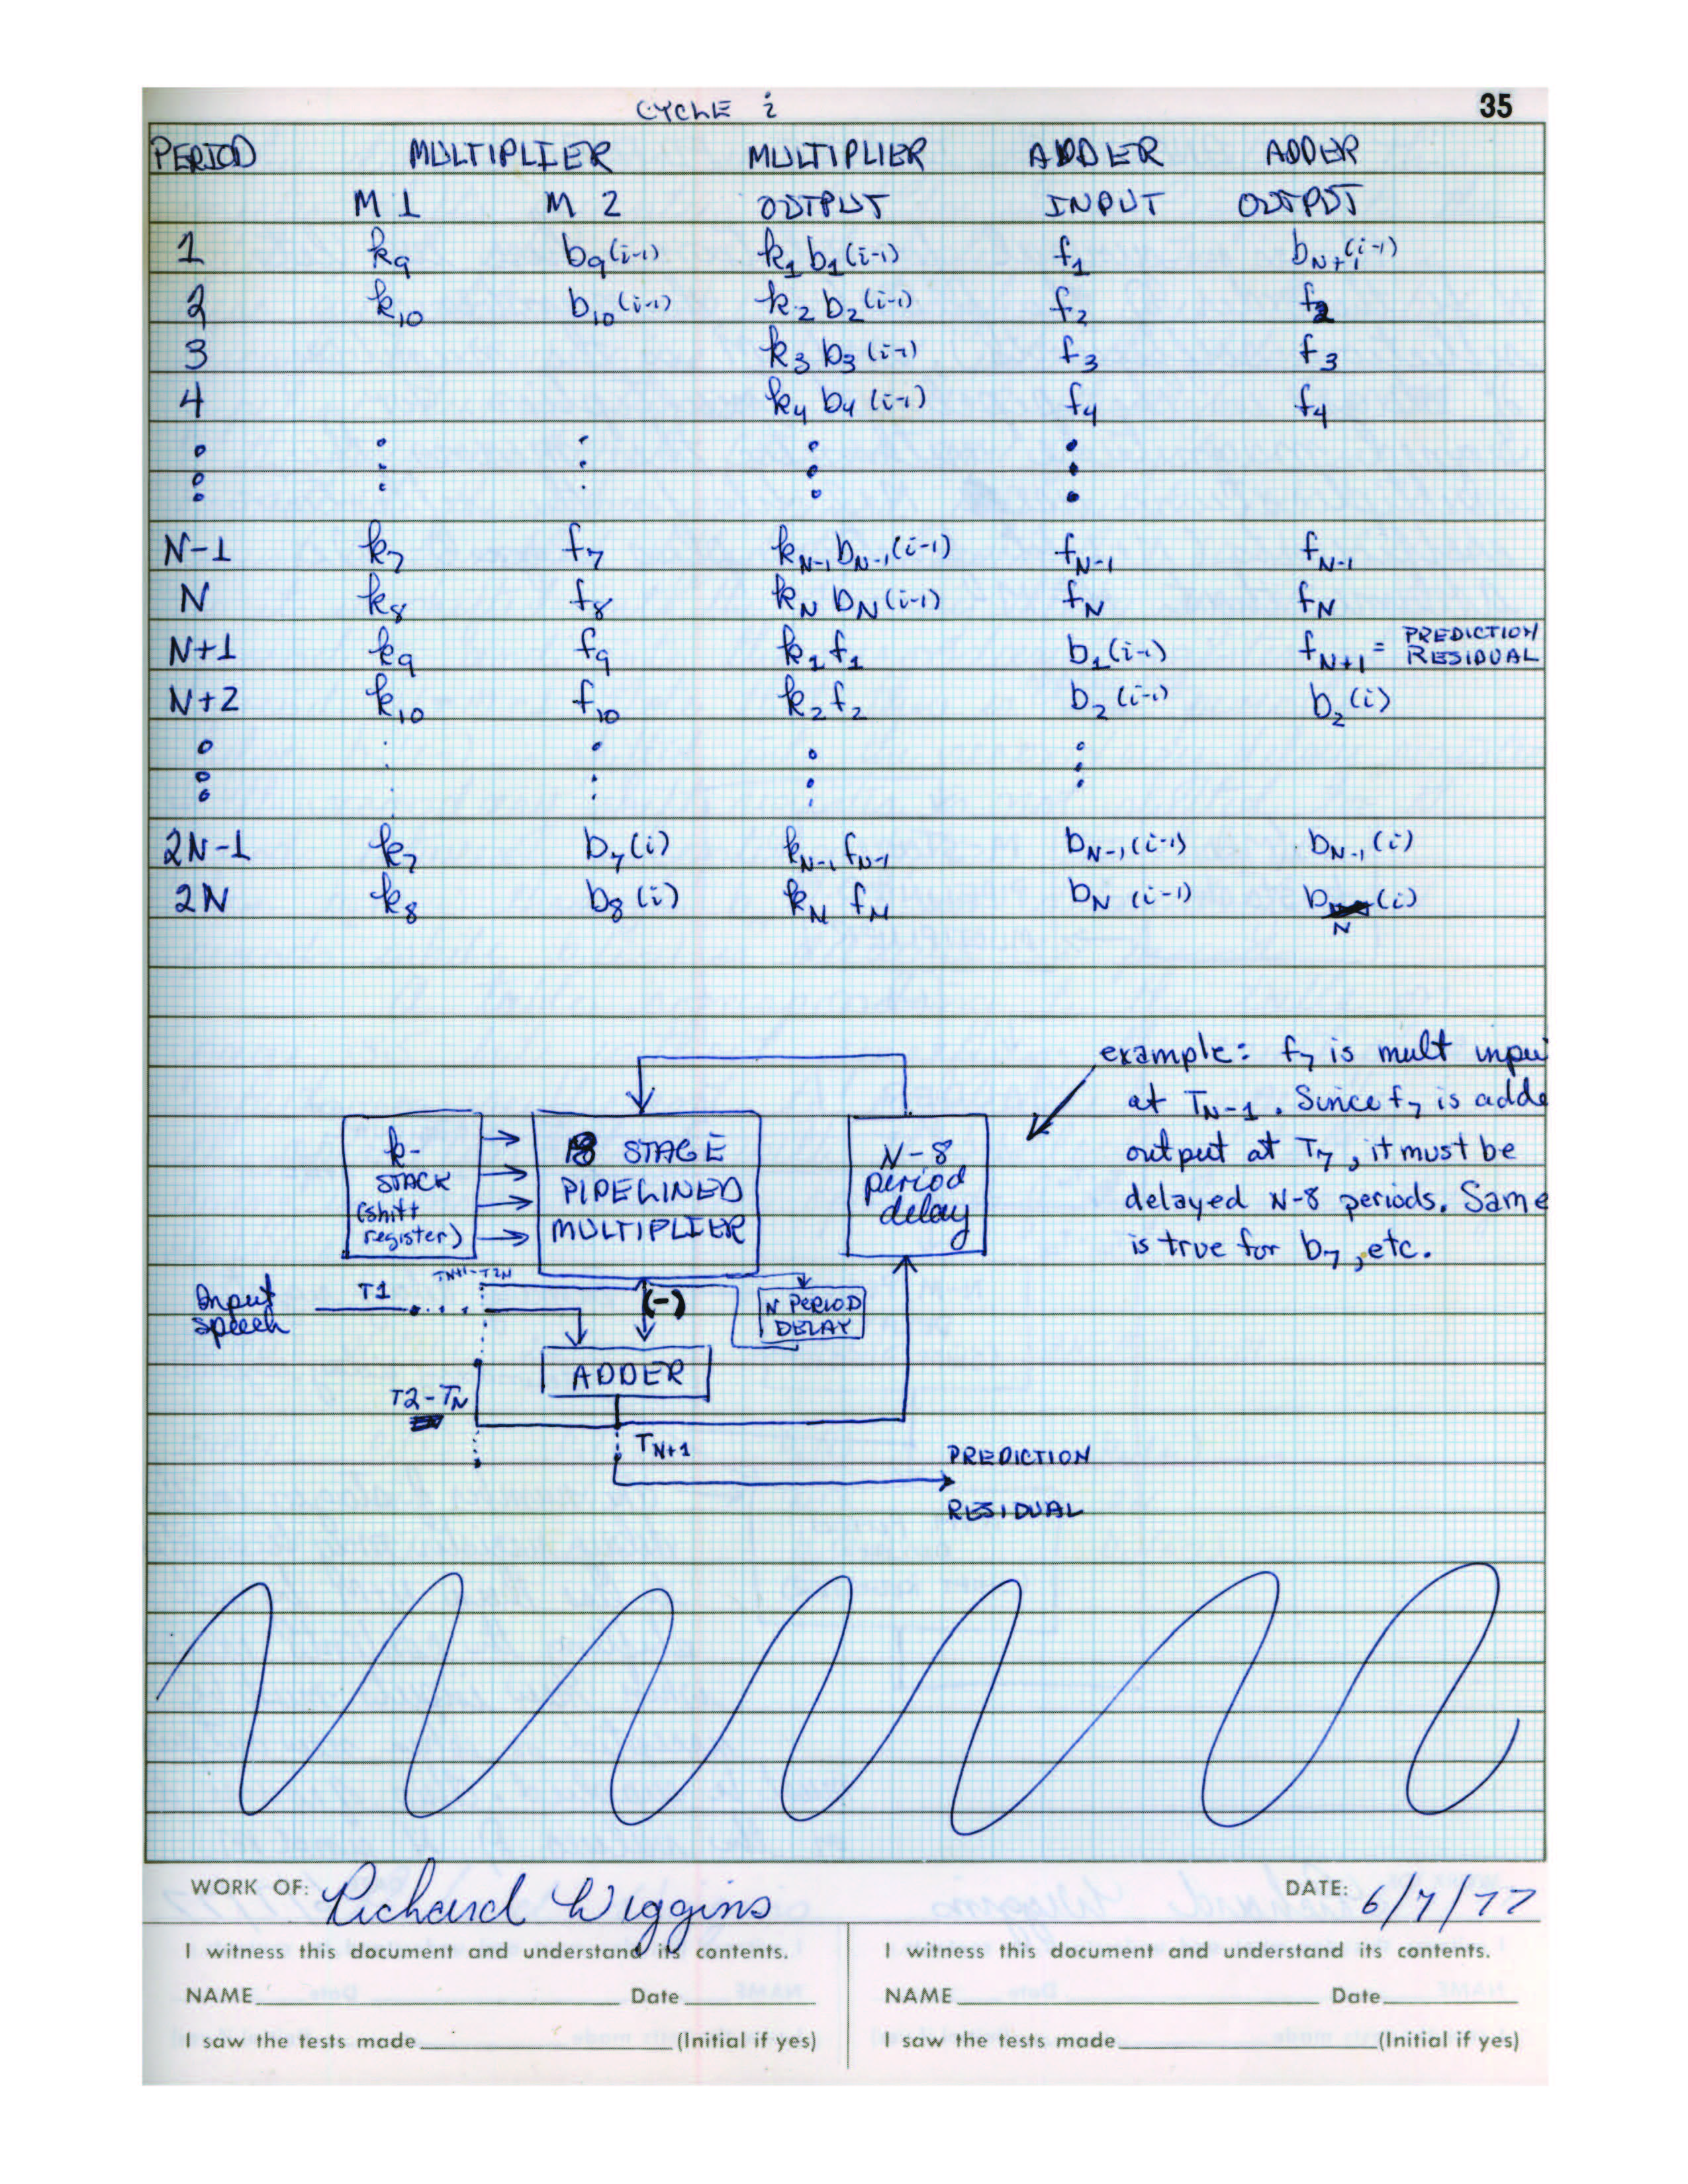 CYCLE i 35
PERIOD MULTIPLIER MULTIPLIER ADDER ADDER
M1 M2 OUTPUT INPUT OUTPUT
1 k₉ b₉(i-1) k₁ b₁(i-1) f₁ b_N+1(i-1)
2 k₁₀ b₁₀(i-1) k₂ b₂(i-1) f₂ f₂
3 k₃ b₃(i-1) f₃ f₃
4 k₄ b₄(i-1) f₄ f₄
N-1 k₇ f₇ k_N-1 b_N-1(i-1) f_N-1 f_N-1
N k₈ f₈ k_N b_N(i-1) f_N f_N
N+1 k₉ f₉ k₁ f₁ b₁(i-1) f_N+1 = PREDICTION RESIDUAL
N+2 k₁₀ f₁₀ k₂ f₂ b₂(i-1) b₂(i)
2N-1 k₇ b₇(i) k_N-1 f_N-1 b_N-1(i-1) b_N-1(i)
2N k₈ b₈(i) k_N f_N b_N(i-1) b_N(i)
example: f₇ is mult inpu
at T_N-1. Since f₇ is adde
output at T₇, it must be
delayed N-8 periods. Same
is true for b₇, etc.
k-
STACK
(shift
register)
8 STAGE
PIPELINED
MULTIPLIER
N-8
period
delay
Input
speech
T1
TN+1-T2N
(-)
N PERIOD
DELAY
ADDER
T2-TN
T_N+1
PREDICTION
RESIDUAL
WORK OF: Richard Wiggins DATE: 6/7/77
I witness this document and understand its contents.
NAME Date
I saw the tests made (Initial if yes)
I witness this document and understand its contents.
NAME Date
I saw the tests made (Initial if yes)